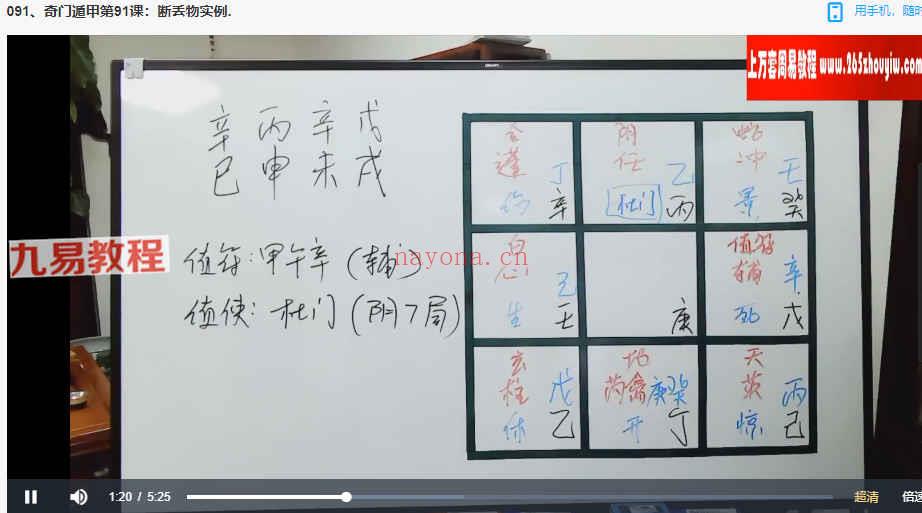 091、奇门遁甲第91课：断丢物实例.
用手机，随时
上万套周易教程 www.265zhouyiw.com
九易教程
nayona.cn
辛 丙 辛 戊
巳 申 未 戌
值符：甲午辛（辅）
值使：杜门（阴7局）
合 阴 蛇
蓬 丁 任 乙 冲 壬
伤 辛 杜门 丙 景 癸
白 值符
心 己 辅 辛
生 壬 庚 死 戊
玄 地 天
柱 戊 芮禽 庚癸 英 丙
休 乙 开 丁 惊 己
1:20 / 5:25
超清
倍速